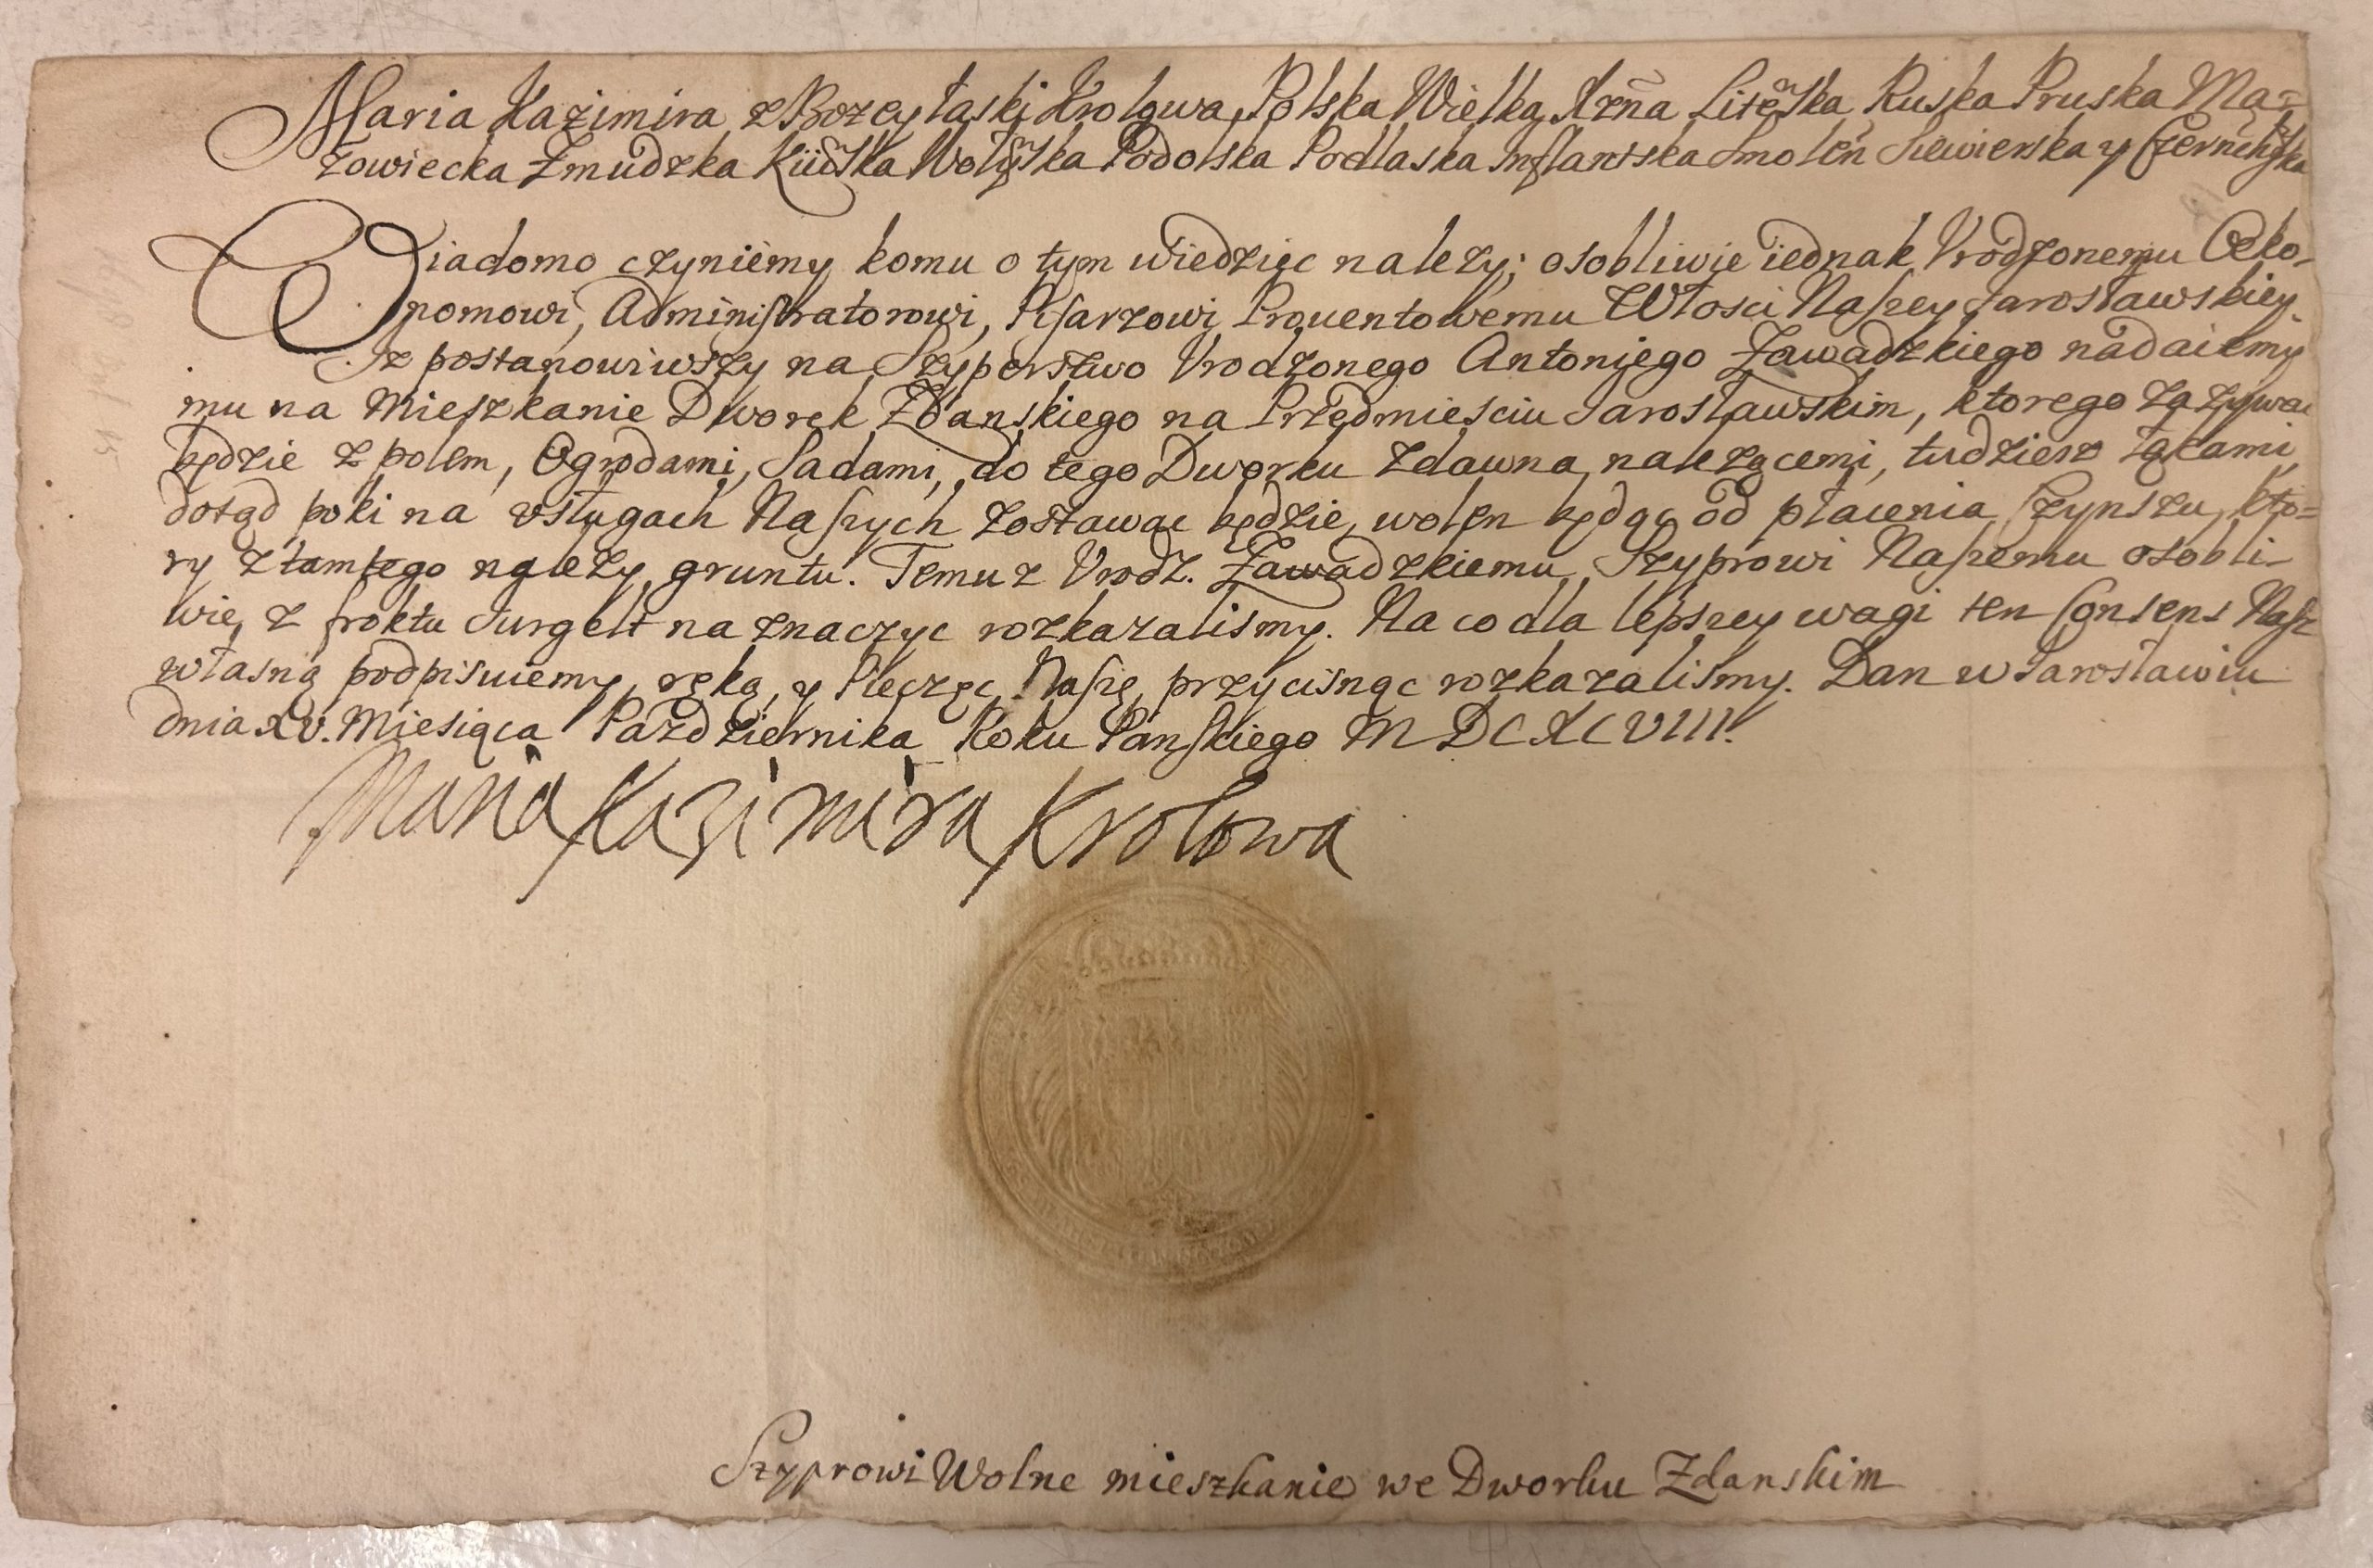 Maria Kazimira z Bozey łaski Krolowa Polska Wielka Xzña Litewska Ruska Pruska Ma=
zowiecka Zmudzka Kiiowska Wołyska Podolska Podlaska Inflantska Smoleń Siewierska y Czernichowska
Wiadomo czyniemy komu o tym wiedzięc nalezy; osobliwie iednak Vrodzonemu Oeko-
nomowi, Administratorowi, Pisarzowi Prouentowemu Włosci Naszey Jarosławskiey.
Iz postanowiwszy na Szyperstwo Vrodzonego Antoniego Zawadzkiego nadaiemy
mu na Mieszkanie Dworek Zdanskiego na Przedmiesciu Jarosławskim, ktorego zazywac
będzie z polem, Ogrodami, Sadami, do tego Dworku zdawna nalezącemi, tudziesz łąkami
dotąd poki na vsługach Naszych zostawac będzie, wolen będąc od płacenia Czynszu, kto=
ry z tamtego nalezy gruntu. Temuz Vrodz. Zawadzkiemu Szyprowi Naszemu osobli-
wie, z froktu Jurgelt naznaczyc rozkazalismy. Na co dla lepszey wagi ten Consens Nasz
własną podpisuiemy ręką, y Pieczęc Naszę przycisnąc rozkazalismy. Dan w Jarosławiu
dnia XV. Miesiąca Pazdziernika Roku Panskiego MDCXCVIII.
Maria Kazimira Krolowa
Szyprowi Wolne mieszkanie we Dworku Zdanskim